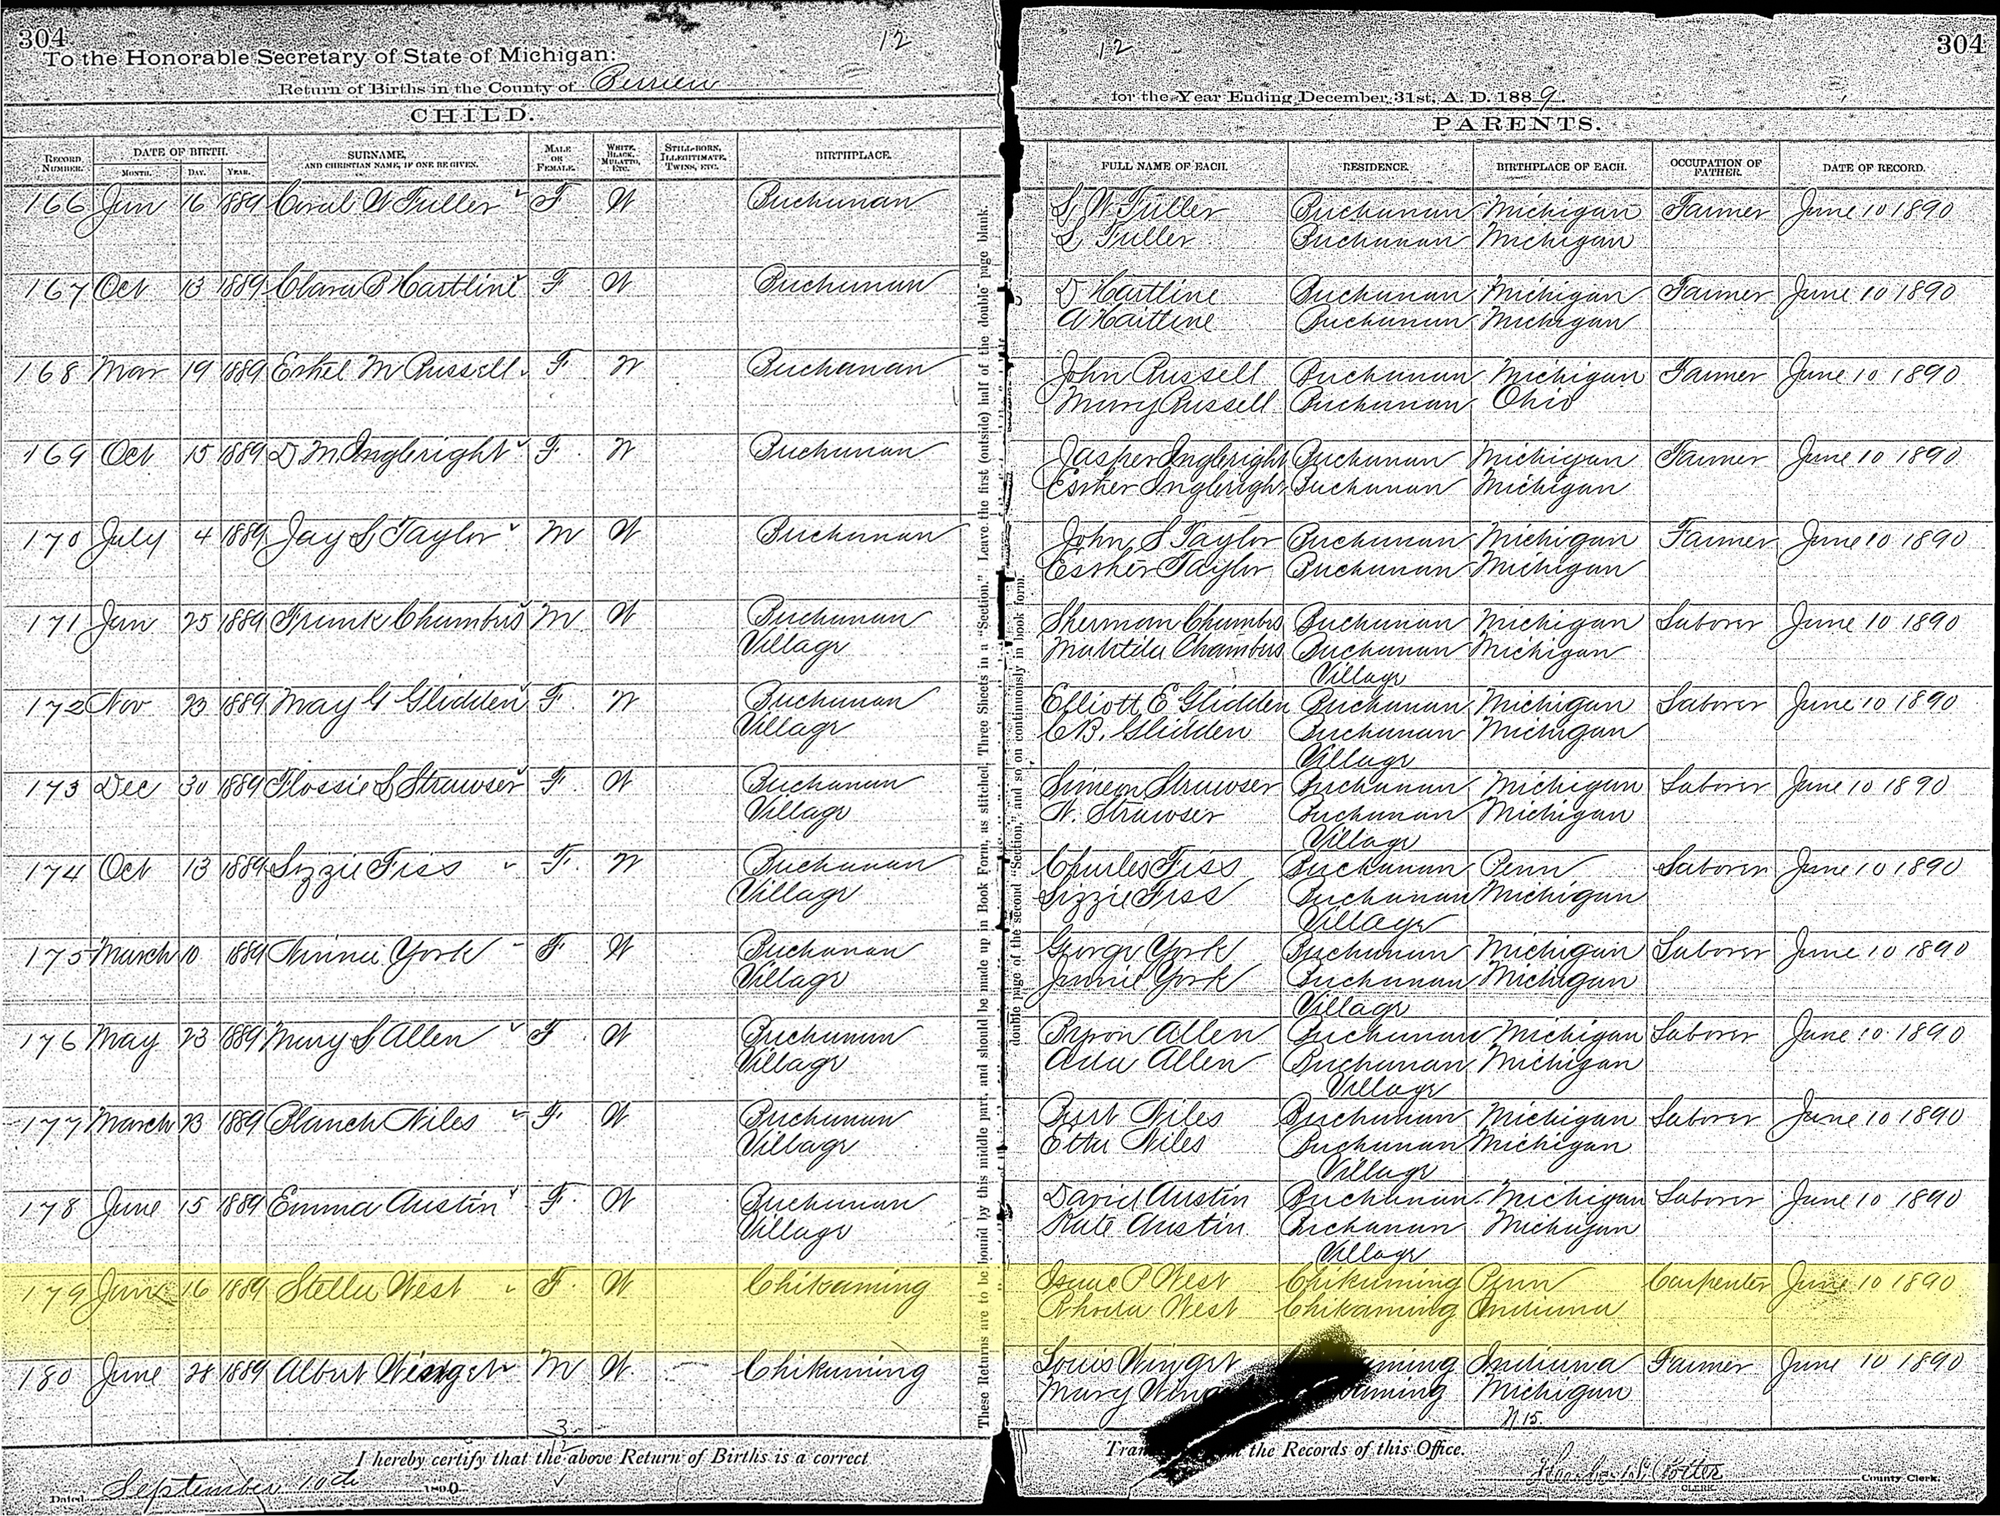 304
12
To the Honorable Secretary of State of Michigan:
Return of Births in the County of Berrien
CHILD.
RECORD NUMBER. DATE OF BIRTH. MONTH. DAY. YEAR. SURNAME, AND CHRISTIAN NAME, IF ONE BE GIVEN. MALE OR FEMALE. WHITE, BLACK, MULATTO, ETC. STILL-BORN, ILLEGITIMATE, TWINS, ETC. BIRTHPLACE.
166 Jun 16 1889 Coral W Fuller F W Buchanan
167 Oct 13 1889 Clara B Hartline F. W Buchanan
168 Mar 19 1889 Ethel M Russell F W Buchanan
169 Oct 15 1889 D. M. Ingleright F. W Buchanan
170 July 4 1889 Jay S Taylor M W Buchanan
171 Jan 25 1889 Frank Chambers M. W Buchanan
Village
172 Nov 23 1889 May G Glidden F. W Buchanan
Village
173 Dec 30 1889 Flossie L Strawser F. W Buchanan
Village
174 Oct 13 1889 Lizzie Fiss F. W Buchanan
Village
175 March 10 1889 Minnie York F W Buchanan
Village
176 May 23 1889 Mary L Allen F. W Buchanan
Village
177 March 23 1889 Blanch Niles F. W Buchanan
Village
178 June 15 1889 Emma Austin F. W Buchanan
Village
179 June 16 1889 Stella West F. W Chikaming
180 June 28 1889 Albert Winget M W. Chikaming
I hereby certify that the above Return of Births is a correct
Dated September 10th 1890
These Returns are to be bound by this middle part, and should be made up in Book Form, as stitched, Three Sheets in a "Section." Leave the first (outside) half of the double page blank.
double page of the second "Section," and so on continuously in book form.
12
304
for the Year Ending December 31st, A. D. 1889.
PARENTS.
FULL NAME OF EACH. RESIDENCE. BIRTHPLACE OF EACH. OCCUPATION OF FATHER. DATE OF RECORD.
S W Fuller Buchanan Michigan Farmer June 10 1890
S Fuller Buchanan Michigan
D Hartline Buchanan Michigan Farmer June 10 1890
A Hartline Buchanan Michigan
John Russell Buchanan Michigan Farmer June 10 1890
Mary Russell Buchanan Ohio
Jasper Ingleright Buchanan Michigan Farmer June 10 1890
Esther Ingleright Buchanan Michigan
John S Taylor Buchanan Michigan Farmer June 10 1890
Esther Taylor Buchanan Michigan
Sherman Chambers Buchanan Michigan Laborer June 10 1890
Matilda Chambers Buchanan Michigan
Village
Elliott E Glidden Buchanan Michigan Laborer June 10 1890
C B. Glidden Buchanan Michigan
Village
Simeon Strawser Buchanan Michigan Laborer June 10 1890
N. Strawser Buchanan Michigan
Village
Charles Fiss Buchanan Penn Laborer June 10 1890
Lizzie Fiss Buchanan Michigan
Village
George York Buchanan Michigan Laborer June 10 1890
Jennie York Buchanan Michigan
Village
Byron Allen Buchanan Michigan Laborer June 10 1890
Ada Allen Buchanan Michigan
Village
Burt Niles Buchanan Michigan Laborer June 10 1890
Etta Niles Buchanan Michigan
Village
David Austin Buchanan Michigan Laborer June 10 1890
Kate Austin Buchanan Michigan
Village
Isaac P West Chikaming Penn Carpenter June 10 1890
Rhoda West Chikaming Indiana
Louis Winget Indiana Farmer June 10 1890
Mary Michigan
the Records of this Office.
County Clerk.
CLERK.